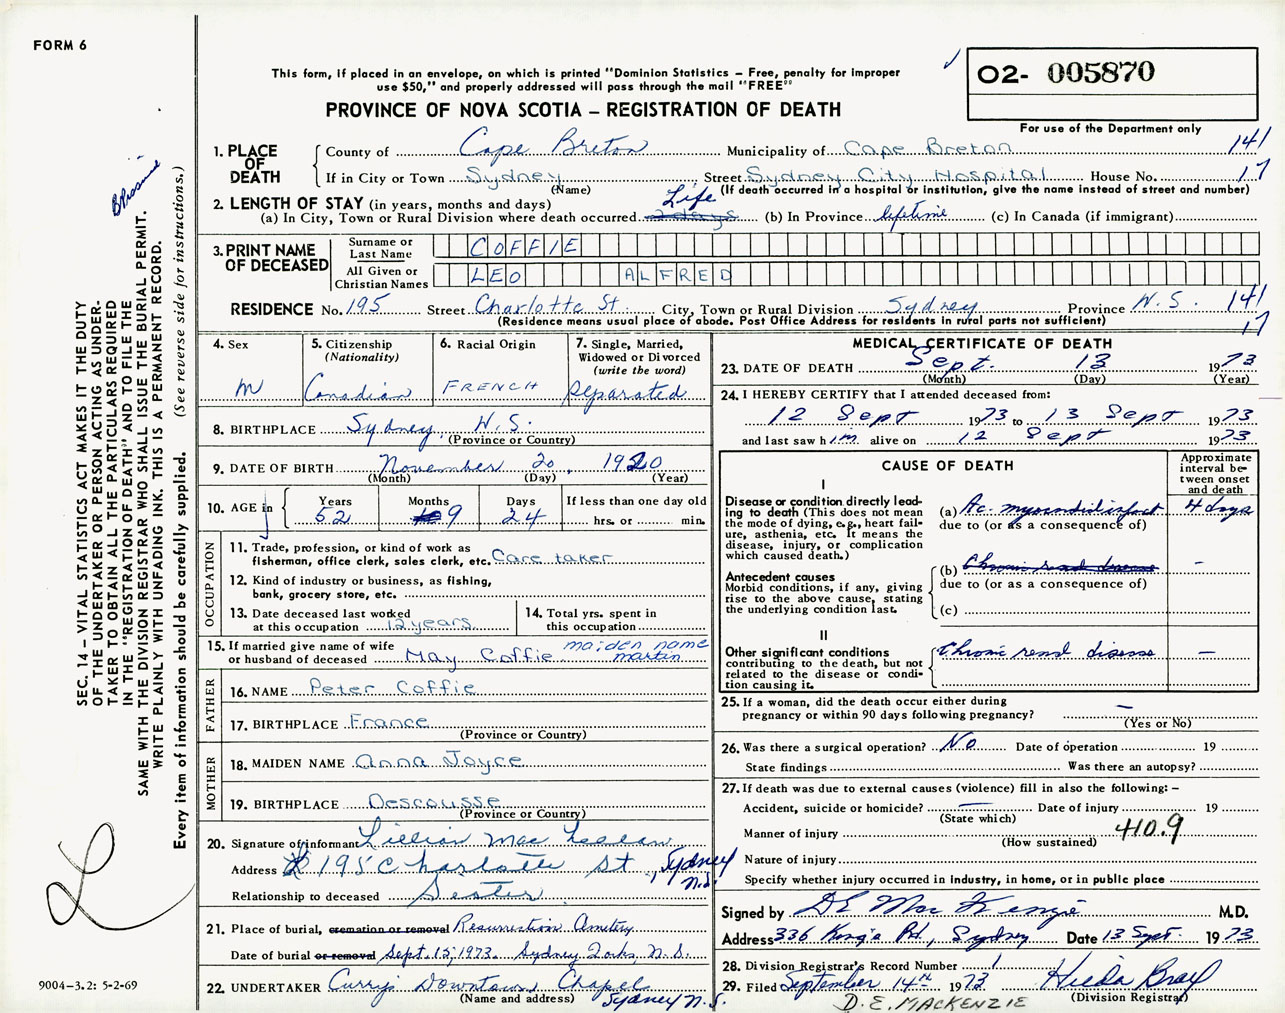 FORM 6
This form, if placed in an envelope, on which is printed "Dominion Statistics – Free, penalty for improper
use $50," and properly addressed will pass through the mail "FREE"
PROVINCE OF NOVA SCOTIA – REGISTRATION OF DEATH
02- 005870
For use of the Department only
SEC. 14 – VITAL STATISTICS ACT MAKES IT THE DUTY
OF THE UNDERTAKER OR PERSON ACTING AS UNDER-
TAKER TO OBTAIN ALL THE PARTICULARS REQUIRED
IN THE "REGISTRATION OF DEATH" AND TO FILE THE
SAME WITH THE DIVISION REGISTRAR WHO SHALL ISSUE THE BURIAL PERMIT.
WRITE PLAINLY WITH UNFADING INK. THIS IS A PERMANENT RECORD.
Every item of information should be carefully supplied. (See reverse side for instructions.)
1. PLACE OF DEATH
County of Cape Breton Municipality of Cape Breton 141
If in City or Town Sydney Street Sydney City Hospital House No. 17
(Name) (If death occurred in a hospital or institution, give the name instead of street and number)
2. LENGTH OF STAY (in years, months and days) Life
(a) In City, Town or Rural Division where death occurred 2 days (b) In Province lifetime (c) In Canada (if immigrant)
3. PRINT NAME OF DECEASED
Surname or Last Name COFFIE
All Given or Christian Names LEO ALFRED
RESIDENCE No. 195 Street Charlotte St. City, Town or Rural Division Sydney Province N.S. 141
(Residence means usual place of abode. Post Office Address for residents in rural parts not sufficient) 17
4. Sex M
5. Citizenship (Nationality) Canadian
6. Racial Origin FRENCH
7. Single, Married, Widowed or Divorced (write the word) separated
8. BIRTHPLACE Sydney, N.S.
(Province or Country)
9. DATE OF BIRTH November 20, 1920
(Month) (Day) (Year)
10. AGE in Years 52 Months 9 Days 24 If less than one day old hrs. or min.
OCCUPATION
11. Trade, profession, or kind of work as
fisherman, office clerk, sales clerk, etc. Care taker
12. Kind of industry or business, as fishing,
bank, grocery store, etc.
13. Date deceased last worked
at this occupation 12 years
14. Total yrs. spent in
this occupation
15. If married give name of wife maiden name
or husband of deceased May Coffie martin
FATHER
16. NAME Peter Coffie
17. BIRTHPLACE France
(Province or Country)
MOTHER
18. MAIDEN NAME Anna Joyce
19. BIRTHPLACE Descousse
(Province or Country)
20. Signature of informant Lillian Mac Lellan
Address 195 Charlotte St, Sydney N.S.
Relationship to deceased Sester
21. Place of burial, cremation or removal Resurrection Cemetery
Date of burial or removal Sept. 15, 1973. Sydney Forks, N.S.
22. UNDERTAKER Curry's Downtown Chapel
(Name and address) Sydney N.S.
MEDICAL CERTIFICATE OF DEATH
23. DATE OF DEATH Sept. 13 1973
(Month) (Day) (Year)
24. I HEREBY CERTIFY that I attended deceased from:
12 Sept 1973 to 13 Sept 1973
and last saw him alive on 12 Sept 1973
CAUSE OF DEATH
Approximate interval between onset and death
I
Disease or condition directly lead-
ing to death (This does not mean
the mode of dying, e.g., heart fail-
ure, asthenia, etc. It means the
disease, injury, or complication
which caused death.)
(a) Ac. myocardial infarct 4 days
due to (or as a consequence of)
Antecedent causes
Morbid conditions, if any, giving
rise to the above cause, stating
the underlying condition last.
(b) Chronic renal disease –
due to (or as a consequence of)
(c)
II
Other significant conditions
contributing to the death, but not
related to the disease or condi-
tion causing it.
Chronic renal disease –
25. If a woman, did the death occur either during
pregnancy or within 90 days following pregnancy? –
(Yes or No)
26. Was there a surgical operation? No Date of operation 19
State findings Was there an autopsy?
27. If death was due to external causes (violence) fill in also the following: –
Accident, suicide or homicide? – Date of injury 19
(State which)
Manner of injury 410.9
(How sustained)
Nature of injury
Specify whether injury occurred in industry, in home, or in public place
Signed by DE Mac Kenzie M.D.
Address 336 King's Rd, Sydney Date 13 Sept. 1973
28. Division Registrar's Record Number 1
29. Filed September 14th 1973 Hilda Bray
(Division Registrar)
D.E. MACKENZIE
9004-3.2: 5-2-69